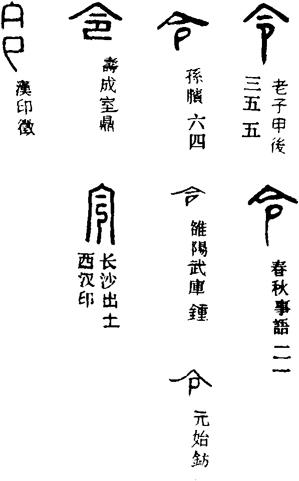 令
老子甲後
三五五
令
春秋事語
令
孫臏 六四
令
雒陽武庫鍾
令
元始鈁
令
壽成室鼎
令
长沙出土
西汉印
令
漢印徵